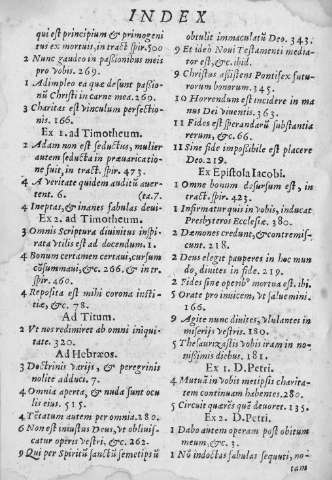 INDEX
qui est principium & primogeni
tus ex mortuis, in tract. spir. 500
2 Nunc gaudeo in passionibus meis
pro vobis. 269.
1 Adimpleo ea quæ desunt passio-
nū Christi in carne mea. 260.
3 Charitas est vinculum perfectio-
nis. 166.
Ex 1. ad Timotheum.
2 Adam non est seductus, mulier
autem seducta in præuaricatione
fuit, in tract. spir. 473.
4 A veritate quidem auditū auer-
tent. 6. 7.
4 Ineptas, & inanes fabulas deui-
Ex 2. ad Timotheum.
3 Omnis Scriptura diuinitus inspi-
rata vtilis est ad docendum. 1.
4 Bonum certamen certaui, cursum
cōsummaui, &c. 266. & in tr.
spir. 460.
4 Reposita est mihi corona iusti-
tiæ, &c. 78.
Ad Titum.
2 Vt nos redimeret ab omni iniqui-
tate. 320.
Ad Hebræos.
3 Doctrinis varijs, & peregrinis
nolite adduci. 7.
4 Omnia aperta, & nuda sunt ocu
lis eius. 515.
4 Tētatum autem per omnia. 180.
6 Non est iniustus Deus, vt obliuis-
catur operis vestri, &c. 262.
9 Qui per Spiritū sanctū semetipsū
obtulit immaculatū Deo. 343.
9 Et ideò Noui Testamenti media-
tor est, &c. ibid.
9 Christus assistens Pontifex futu-
rorum bonorum. 345.
10 Horrendum est incidere in ma
nus Dei viuentis. 363.
11 Fides est sperandarū substantia
rerum, &c. 66.
11 Sine fide impossibile est placere
Deo. 219.
Ex Epistola Iacobi.
1 Omne bonum desursum est, in
tract. spir. 423.
1 Infirmatur quis in vobis, inducat
Presbyteros Ecclesiæ. 380.
2 Dæmones credunt, & contremis-
cunt. 218.
2 Deus elegit pauperes in hoc mun
do, diuites in fide. 219.
2 Fides sine operib⁹ mortua est. ib.
5 Orate pro inuicem, vt saluemini.
166.
9 Agite nunc diuites, vlulantes in
miserijs vestris. 180.
5 Thesaurizastis vobis iram in no-
uissimis diebus. 181.
Ex 1. D. Petri.
4 Mutuā in vobis metipsis charita-
tem continuam habentes. 280.
5 Circuit quærēs quē deuoret. 135.
Ex 2. D. Petri.
1 Dabo autem operam post obitum
meum, &c. 3.
1 Nō indoctas fabulas sequuti, no-
tam